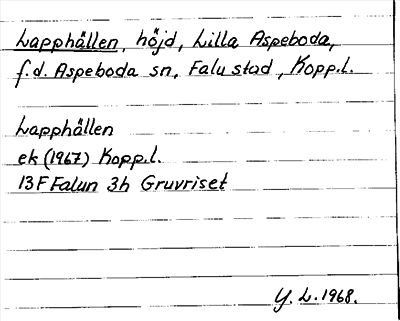 Lapphällen, höjd, Lilla Aspeboda,
f.d. Aspeboda sn, Falu stad, Kopp.l.
Lapphällen
ek (1967) Kopp.l.
13F Falun 3h Gruvriset
Y. L. 1968.